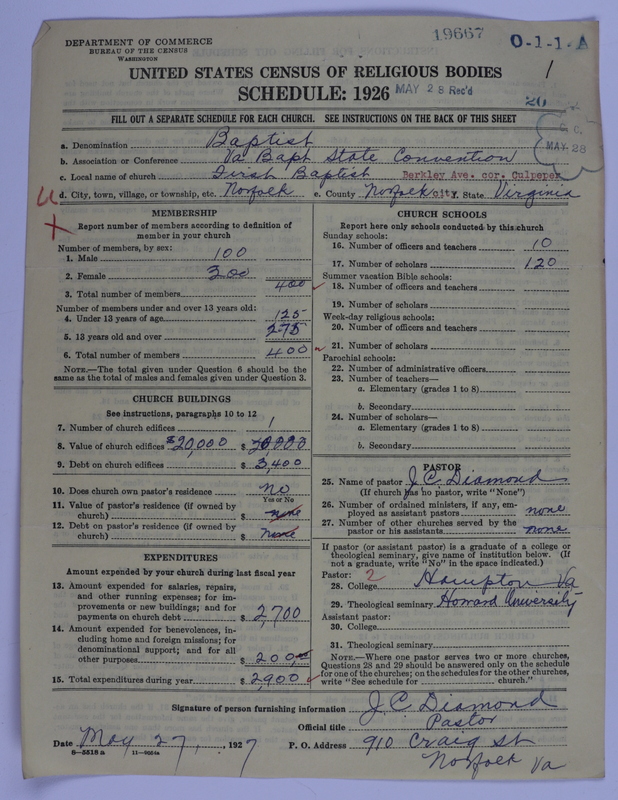 19667
DEPARTMENT OF COMMERCE
BUREAU OF THE CENSUS
WASHINGTON
O-1-1-A
1
UNITED STATES CENSUS OF RELIGIOUS BODIES
SCHEDULE: 1926 MAY 28 Rec'd
20
FILL OUT A SEPARATE SCHEDULE FOR EACH CHURCH. SEE INSTRUCTIONS ON THE BACK OF THIS SHEET
MAY 28
a. Denomination Baptist
b. Association or Conference Va Bapt State Convention
c. Local name of church First Baptist Berkley Ave. cor. Culpeper
d. City, town, village, or township, etc. Norfolk e. County Norfolk city f. State Virginia
MEMBERSHIP
Report number of members according to definition of
member in your church
Number of members, by sex:
1. Male 100
2. Female 300
3. Total number of members 400
Number of members under and over 13 years old:
4. Under 13 years of age 125
5. 13 years old and over 275
6. Total number of members 400
NOTE.—The total given under Question 6 should be
same as the total of males and females given under Question 3.
CHURCH BUILDINGS
See instructions, paragraphs 10 to 12
7. Number of church edifices 1
8. Value of church edifices $20,000 $
9. Debt on church edifices $ 3,400
10. Does church own pastor's residence no
Yes or No
11. Value of pastor's residence (if owned by
church) $ none
12. Debt on pastor's residence (if owned by
church) $ none
EXPENDITURES
Amount expended by your church during last fiscal year
13. Amount expended for salaries, repairs,
and other running expenses; for im-
provements or new buildings; and for
payments on church debt $ 2,700
14. Amount expended for benevolences, in-
cluding home and foreign missions; for
denominational support; and for all
other purposes $ 200.00
15. Total expenditures during year $ 2,900
CHURCH SCHOOLS
Report here only schools conducted by this church
Sunday schools:
16. Number of officers and teachers 10
17. Number of scholars 120
Summer vacation Bible schools:
18. Number of officers and teachers
19. Number of scholars
Week-day religious schools:
20. Number of officers and teachers
21. Number of scholars
Parochial schools:
22. Number of administrative officers
23. Number of teachers—
a. Elementary (grades 1 to 8)
b. Secondary
24. Number of scholars—
a. Elementary (grades 1 to 8)
b. Secondary
PASTOR
25. Name of pastor J. C. Diamond
(If church has no pastor, write "None")
26. Number of ordained ministers, if any, em-
ployed as assistant pastors none
27. Number of other churches served by the
pastor or his assistants none
If pastor (or assistant pastor) is a graduate of a college or
theological seminary, give name of institution below. (If
not a graduate, write "No" in the space indicated.)
Pastor: 2
28. College Hampton Va
29. Theological seminary Howard University
Assistant pastor:
30. College
31. Theological seminary
NOTE.—Where one pastor serves two or more churches,
Questions 28 and 29 should be answered only on the schedule
for one of the churches; on the schedules for the other churches,
write "See schedule for church."
Signature of person furnishing information J. C. Diamond
Official title Pastor
Date May 27, 1927 P. O. Address 910 Craig St
8-5518 a 11-9664a
Norfolk Va